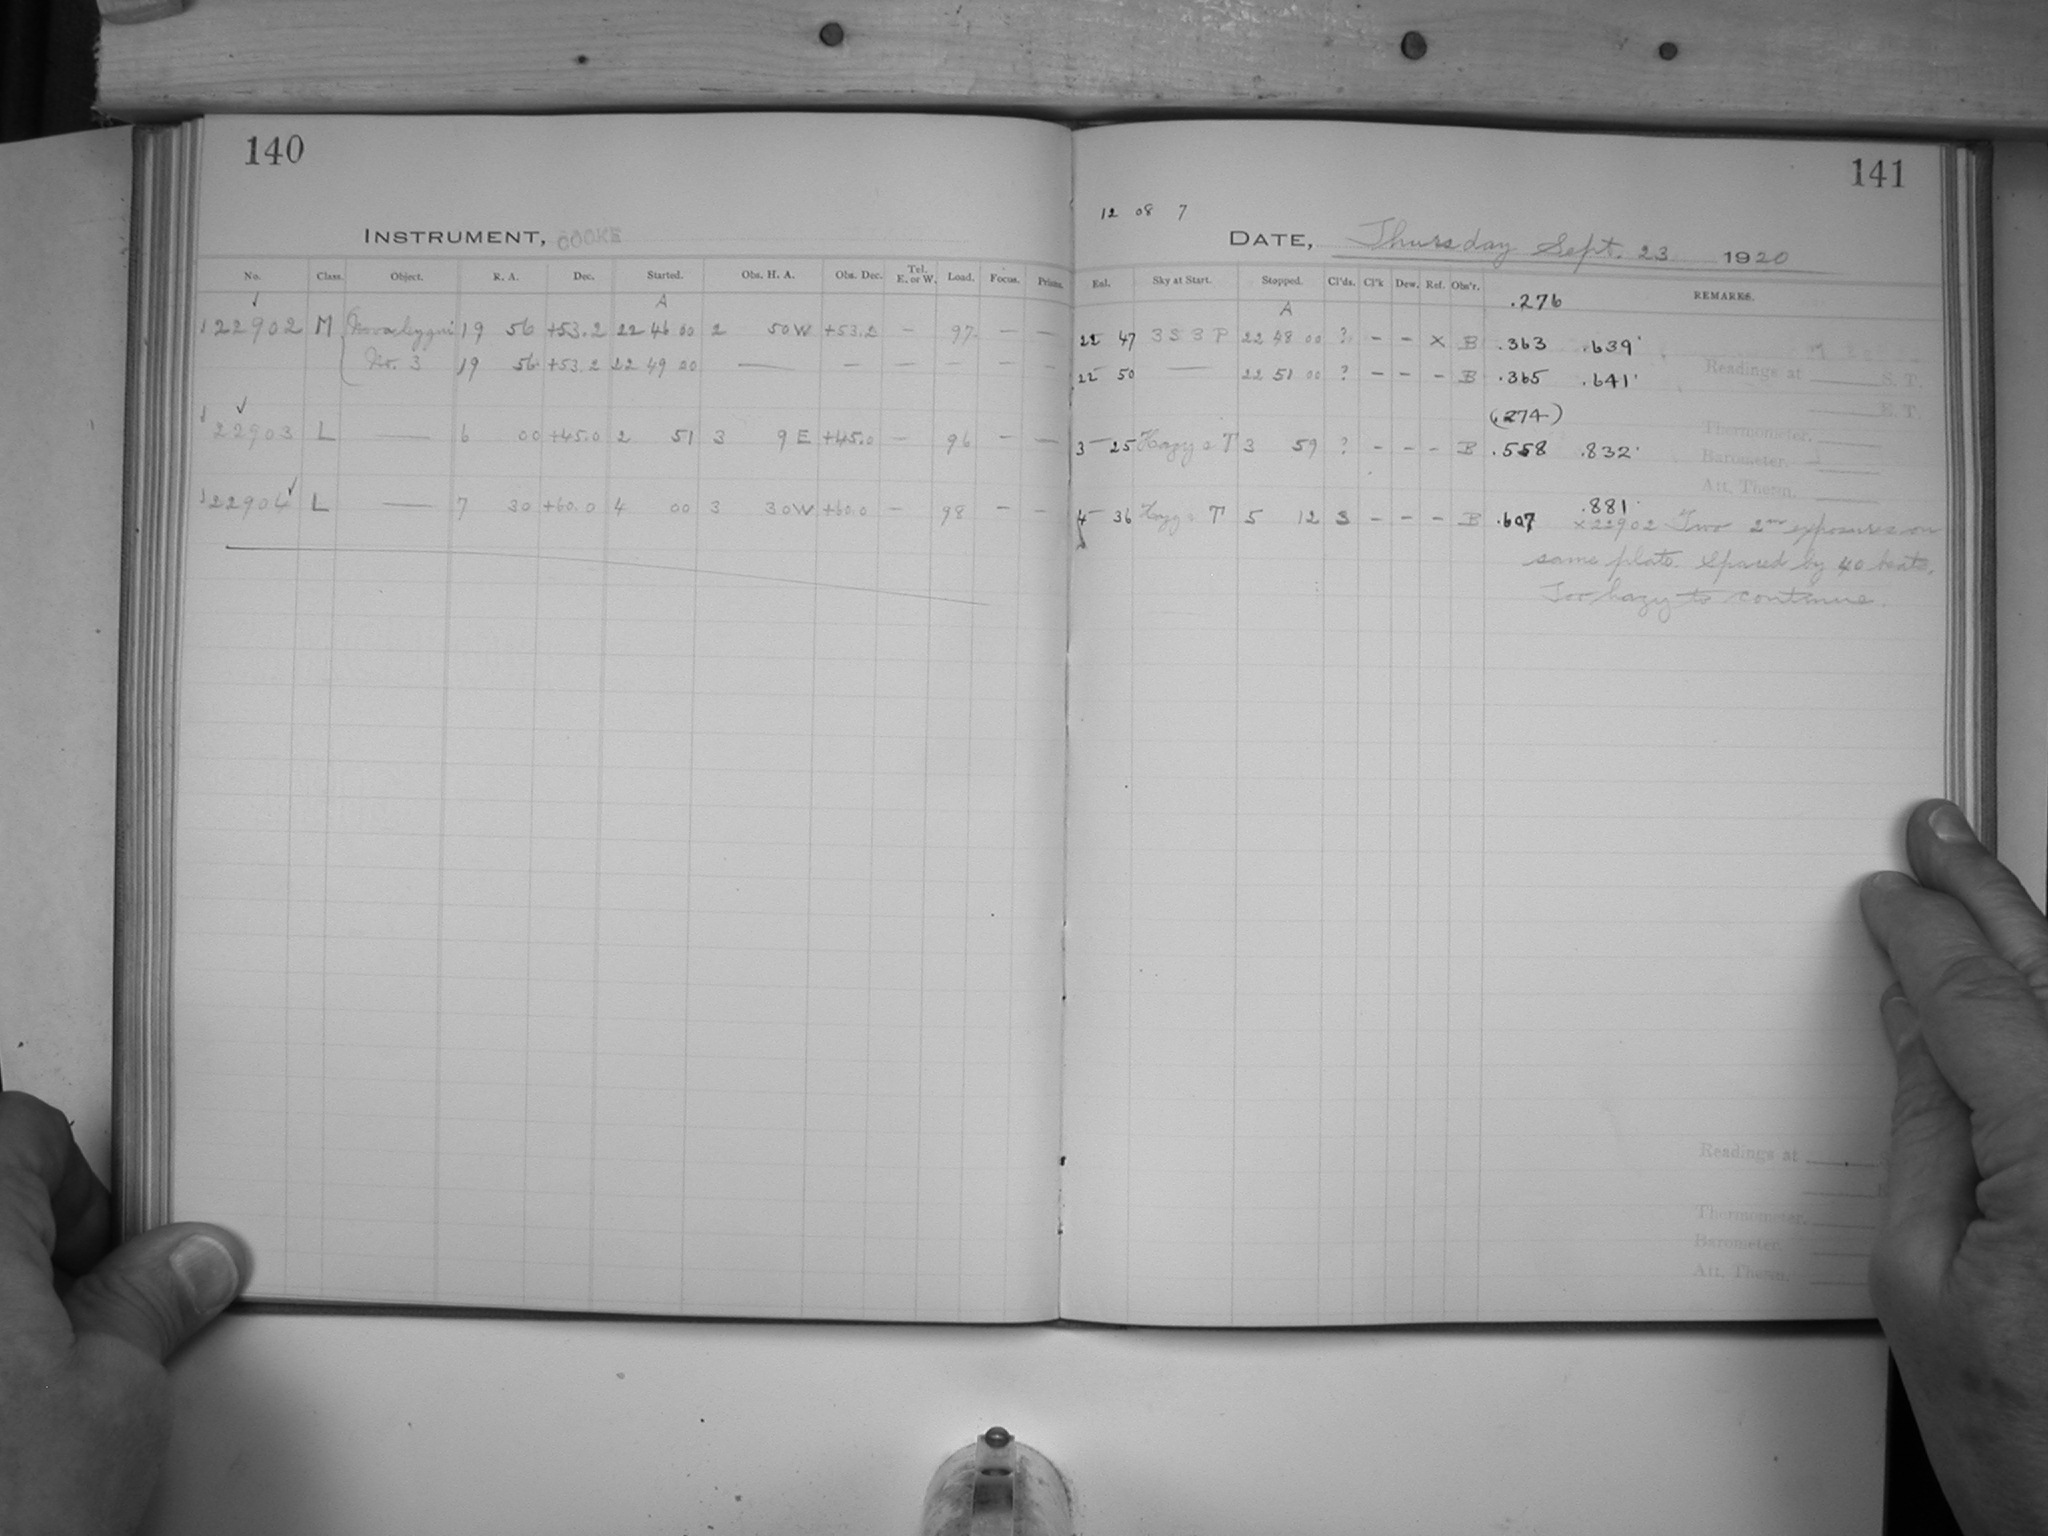 140
INSTRUMENT, COOKE
No. Class. Object. R. A. Dec. Started. Obs. H. A. Obs. Dec. Tel. E. or W. Load. Focus. Prisms.
A
122902 M Nova Cygni 19 56 +53.2 22 46 00 2 50 W +53.2 — 97 — —
No. 3 19 56 +53.2 22 49 00 — — — — — —
122903 L — 6 00 +45.0 2 51 3 9 E +45.0 — 96 — —
122904 L — 7 30 +60.0 4 00 3 30 W +60.0 — 98 — —
141
12 08 7
DATE, Thursday Sept. 23 1920
Sky at Start. Stopped. Cl'ds. Cl'k Dew. Ref. Obs'r. REMARKS.
.276
A
22 47 3 S 3 P 22 48 00 ? – – × B .363 .639
Readings at S. T.
22 50 — 22 51 00 ? – – – B .365 .641
E. T.
(.274)
Thermometer,
3 25 Hazy T 3 59 ? – – – B .558 .832
Barometer,
Att. Therm.
.881
4 36 Hazy T 5 12 S – – – B .607 ×22902 Two 2m exposures on
same plate. Spaced by 40 beats.
Too hazy to continue.
Readings at
Thermometer,
Barometer,
Att. Therm.